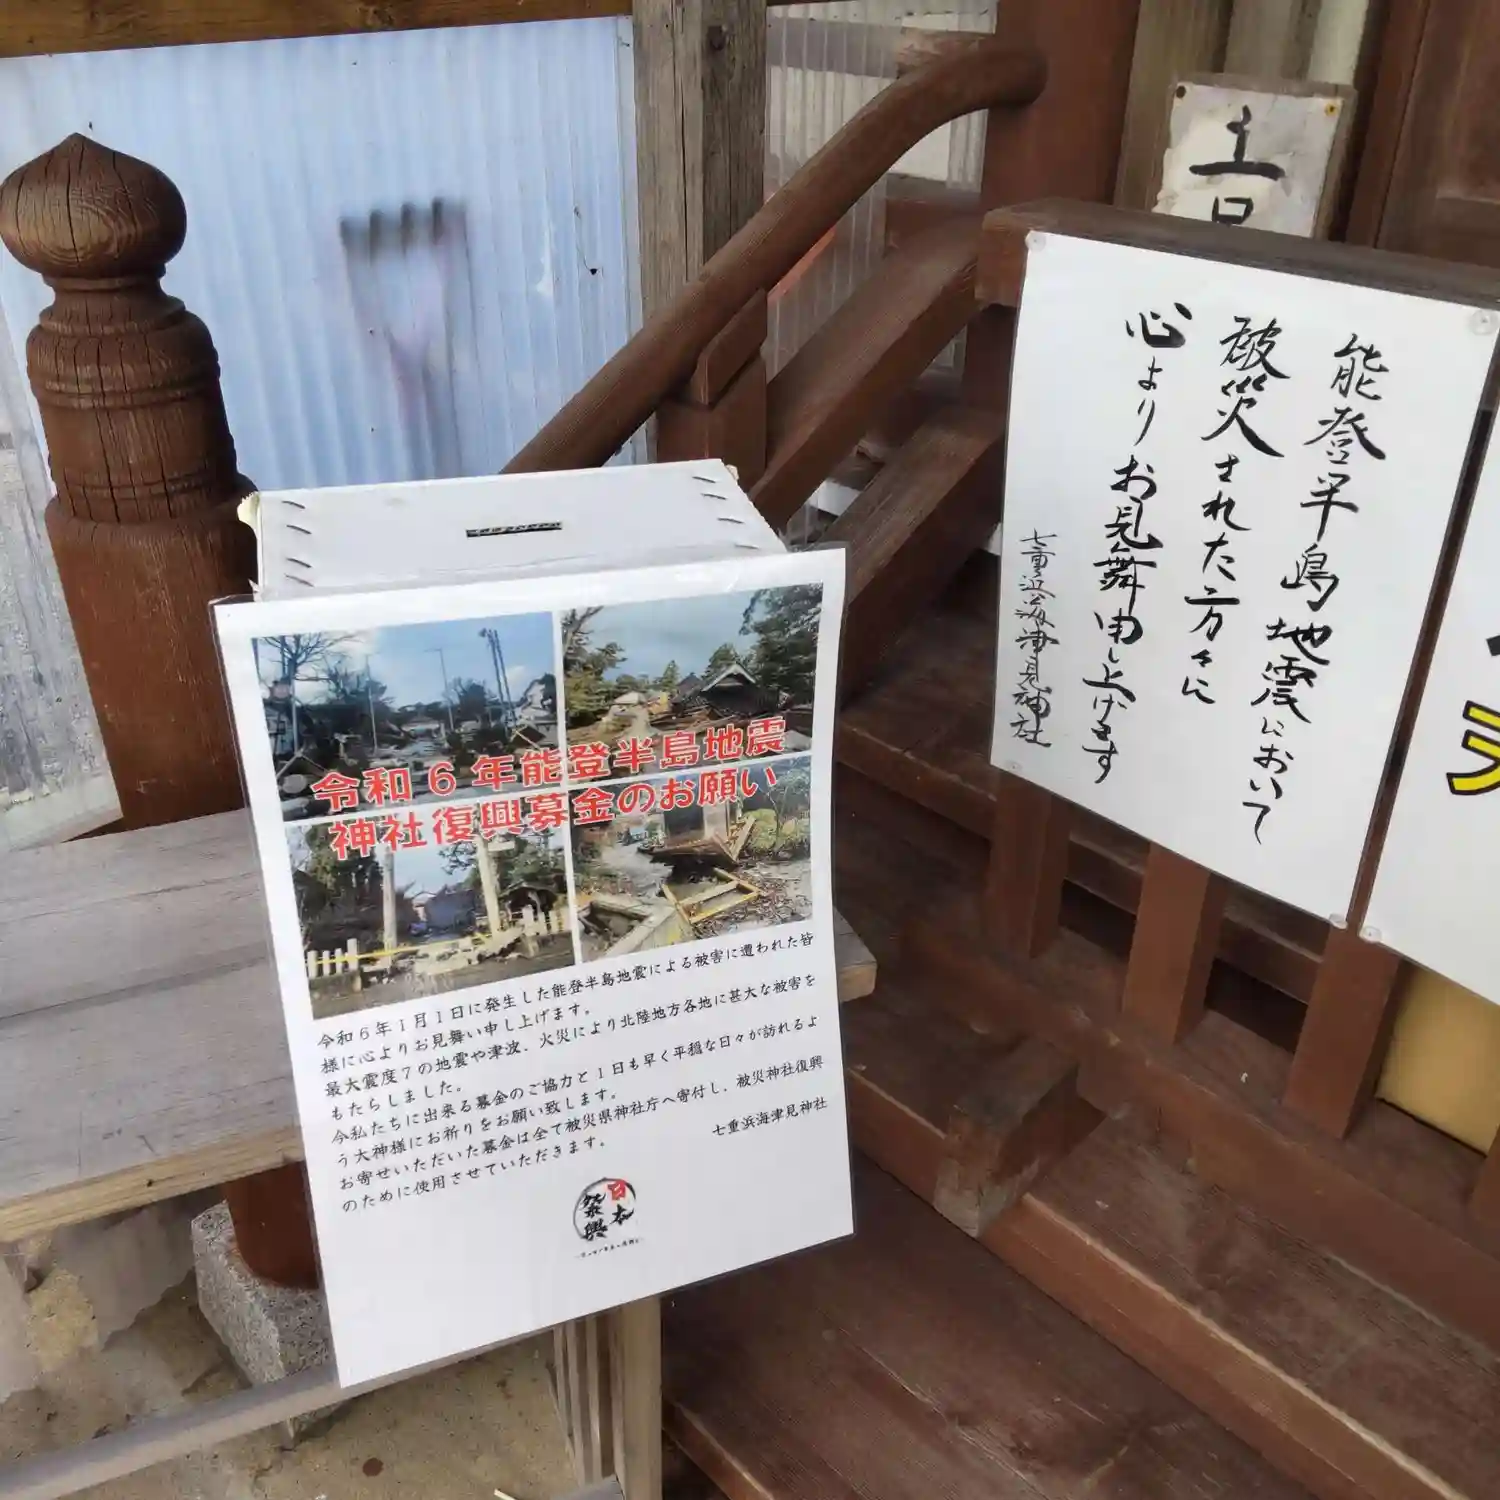 令和6年能登半島地震
神社復興募金のお願い
令和6年1月1日に発生した能登半島地震による被害に遭われた皆
様に心よりお見舞い申し上げます。
最大震度7の地震や津波、火災により北陸地方各地に甚大な被害を
もたらしました。
今私たちに出来る募金のご協力と1日も早く平穏な日々が訪れるよ
う大神様にお祈りをお願い致します。
お寄せいただいた募金は全て被災県神社庁へ寄付し、被災神社復興
のために使用させていただきます。
七重浜海津見神社
日本
祭興
能登半島地震において
被災された方々に
心よりお見舞申し上げます
七重浜海津見神社
土